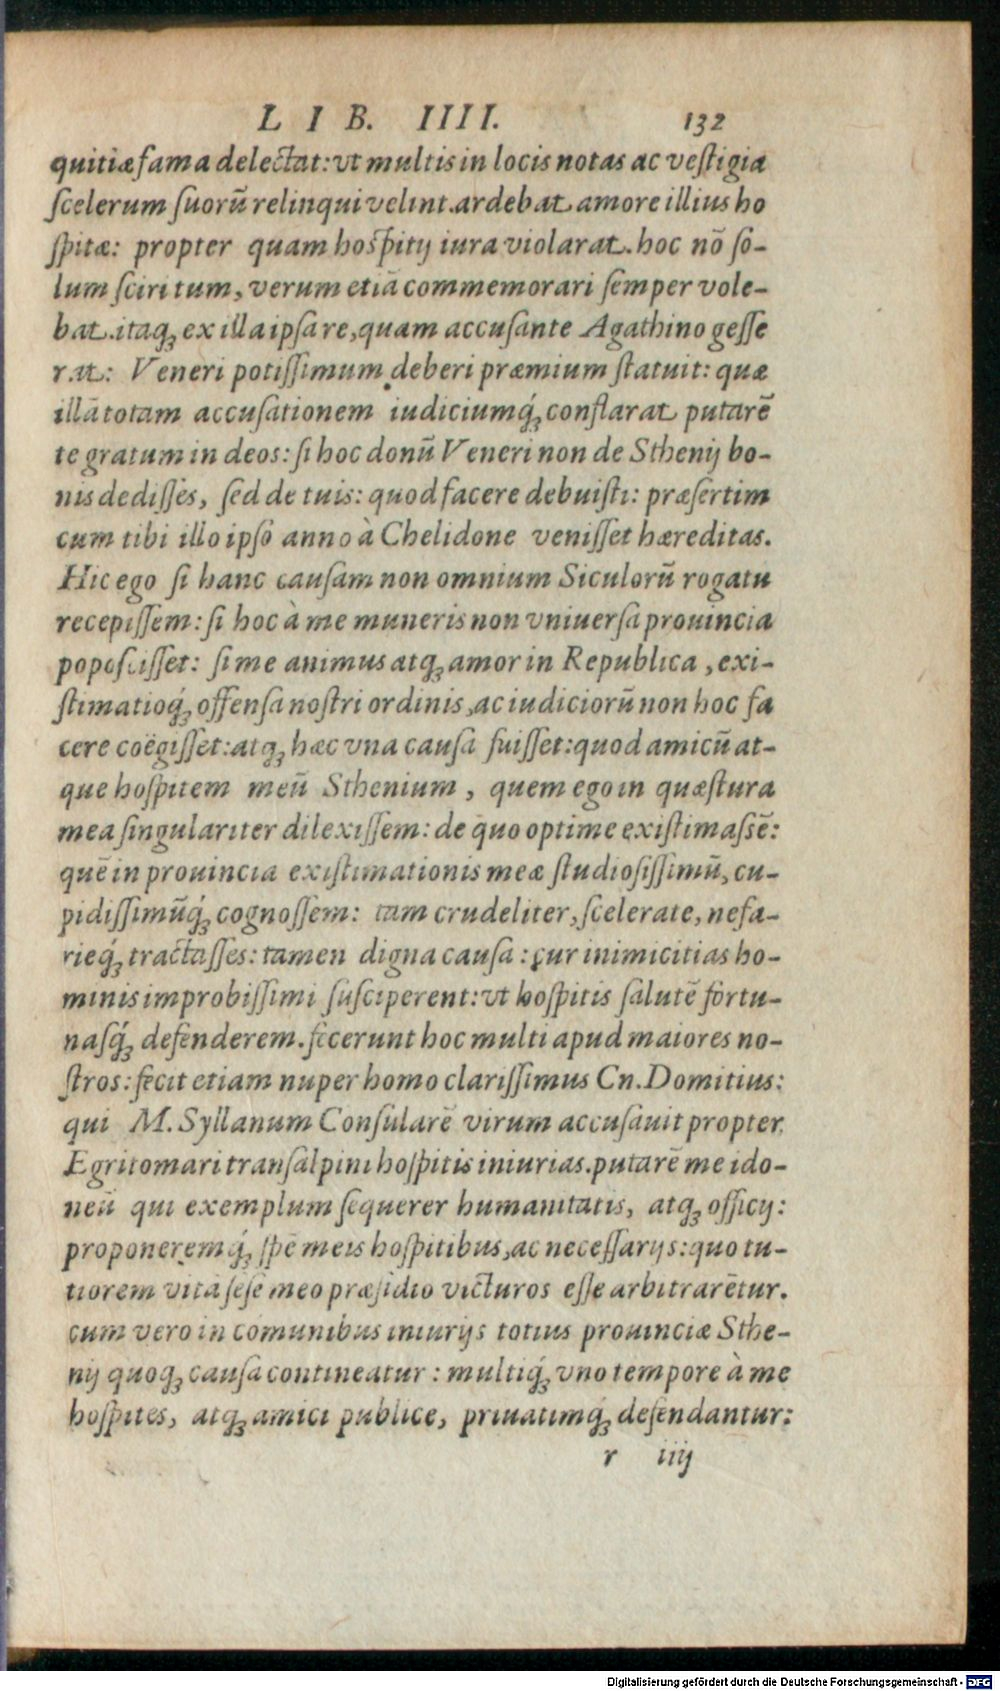 LIB. IIII. 132
quitiæ fama delectat: vt multis in locis notas ac veſtigia
ſcelerum ſuorū relinqui velint. ardebat amore illius ho
ſpitæ: propter quam hoſpitij iura violarat. hoc nō ſo-
lum ſciri tum, verum etiā commemorari ſemper vole-
bat. itaqꝫ ex illa ipſa re, quam accuſante Agathino geſſe
rat: Veneri potiſſimum deberi præmium ſtatuit: quæ
illā totam accuſationem iudiciumqꝫ́ conflarat putarē
te gratum in deos: ſi hoc donū Veneri non de Sthenij bo-
nis dediſſes, ſed de tuis: quod facere debuiſti: præſertim
cum tibi illo ipſo anno à Chelidone veniſſet hæreditas.
Hic ego ſi hanc cauſam non omnium Siculorū rogatu
recepiſſem: ſi hoc à me muneris non vniuerſa prouincia
popoſciſſet: ſi me animus atqꝫ amor in Republica, exi-
ſtimatioqꝫ́ offenſa noſtri ordinis, ac iudiciorū non hoc fa
cere coëgiſſet: atqꝫ hæc vna cauſa fuiſſet: quod amicū at-
que hoſpitem meū Sthenium, quem ego in quæſtura
mea ſingulariter dilexiſſem: de quo optime exiſtimaſsē:
quē in prouincia exiſtimationis meæ ſtudioſiſſimū, cu-
pidiſſimūqꝫ́ cognoſſem: tam crudeliter, ſcelerate, nefa-
rieqꝫ́ tractaſſes: tamen digna cauſa: cur inimicitias ho-
minis improbiſſimi ſuſciperent: vt hoſpitis ſalutē fortu-
naſqꝫ́ defenderem. fecerunt hoc multi apud maiores no-
ſtros: fecit etiam nuper homo clariſſimus Cn. Domitius:
qui M. Syllanum Conſularē virum accuſauit propter
Egritomari tranſalpini hoſpitis iniurias. putarē me ido-
neū qui exemplum ſequerer humanitatis, atqꝫ officij:
proponeremqꝫ́ ſpē meis hoſpitibus, ac neceſſarijs: quo tu-
tiorem vitā ſeſe meo præſidio victuros eſſe arbitrarētur.
cum vero in comunibus iniurijs totius prouinciæ Sthe-
nij quoqꝫ cauſa contineatur: multiqꝫ́ vno tempore à me
hoſpites, atqꝫ amici publice, priuatimqꝫ́ defendantur:
r iiij
Digitalisierung gefördert durch die Deutsche Forschungsgemeinschaft - DFG